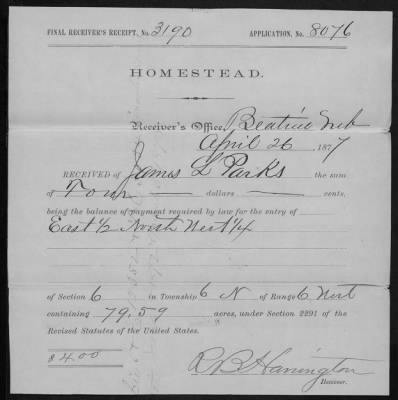 FINAL RECEIVER'S RECEIPT, No. 3190 APPLICATION, No. 8076
HOMESTEAD.
Receiver's Office, Beatrice Neb
April 26 1877
RECEIVED OF James L Parks the sum
of Four dollars cents,
being the balance of payment required by law for the entry of
East 1/2 North West 1/4
of Section 6 in Township 6 N of Range 6 West
containing 79.59 acres, under Section 2291 of the
Revised Statutes of the United States.
$4.00
R B Harrington
Receiver.